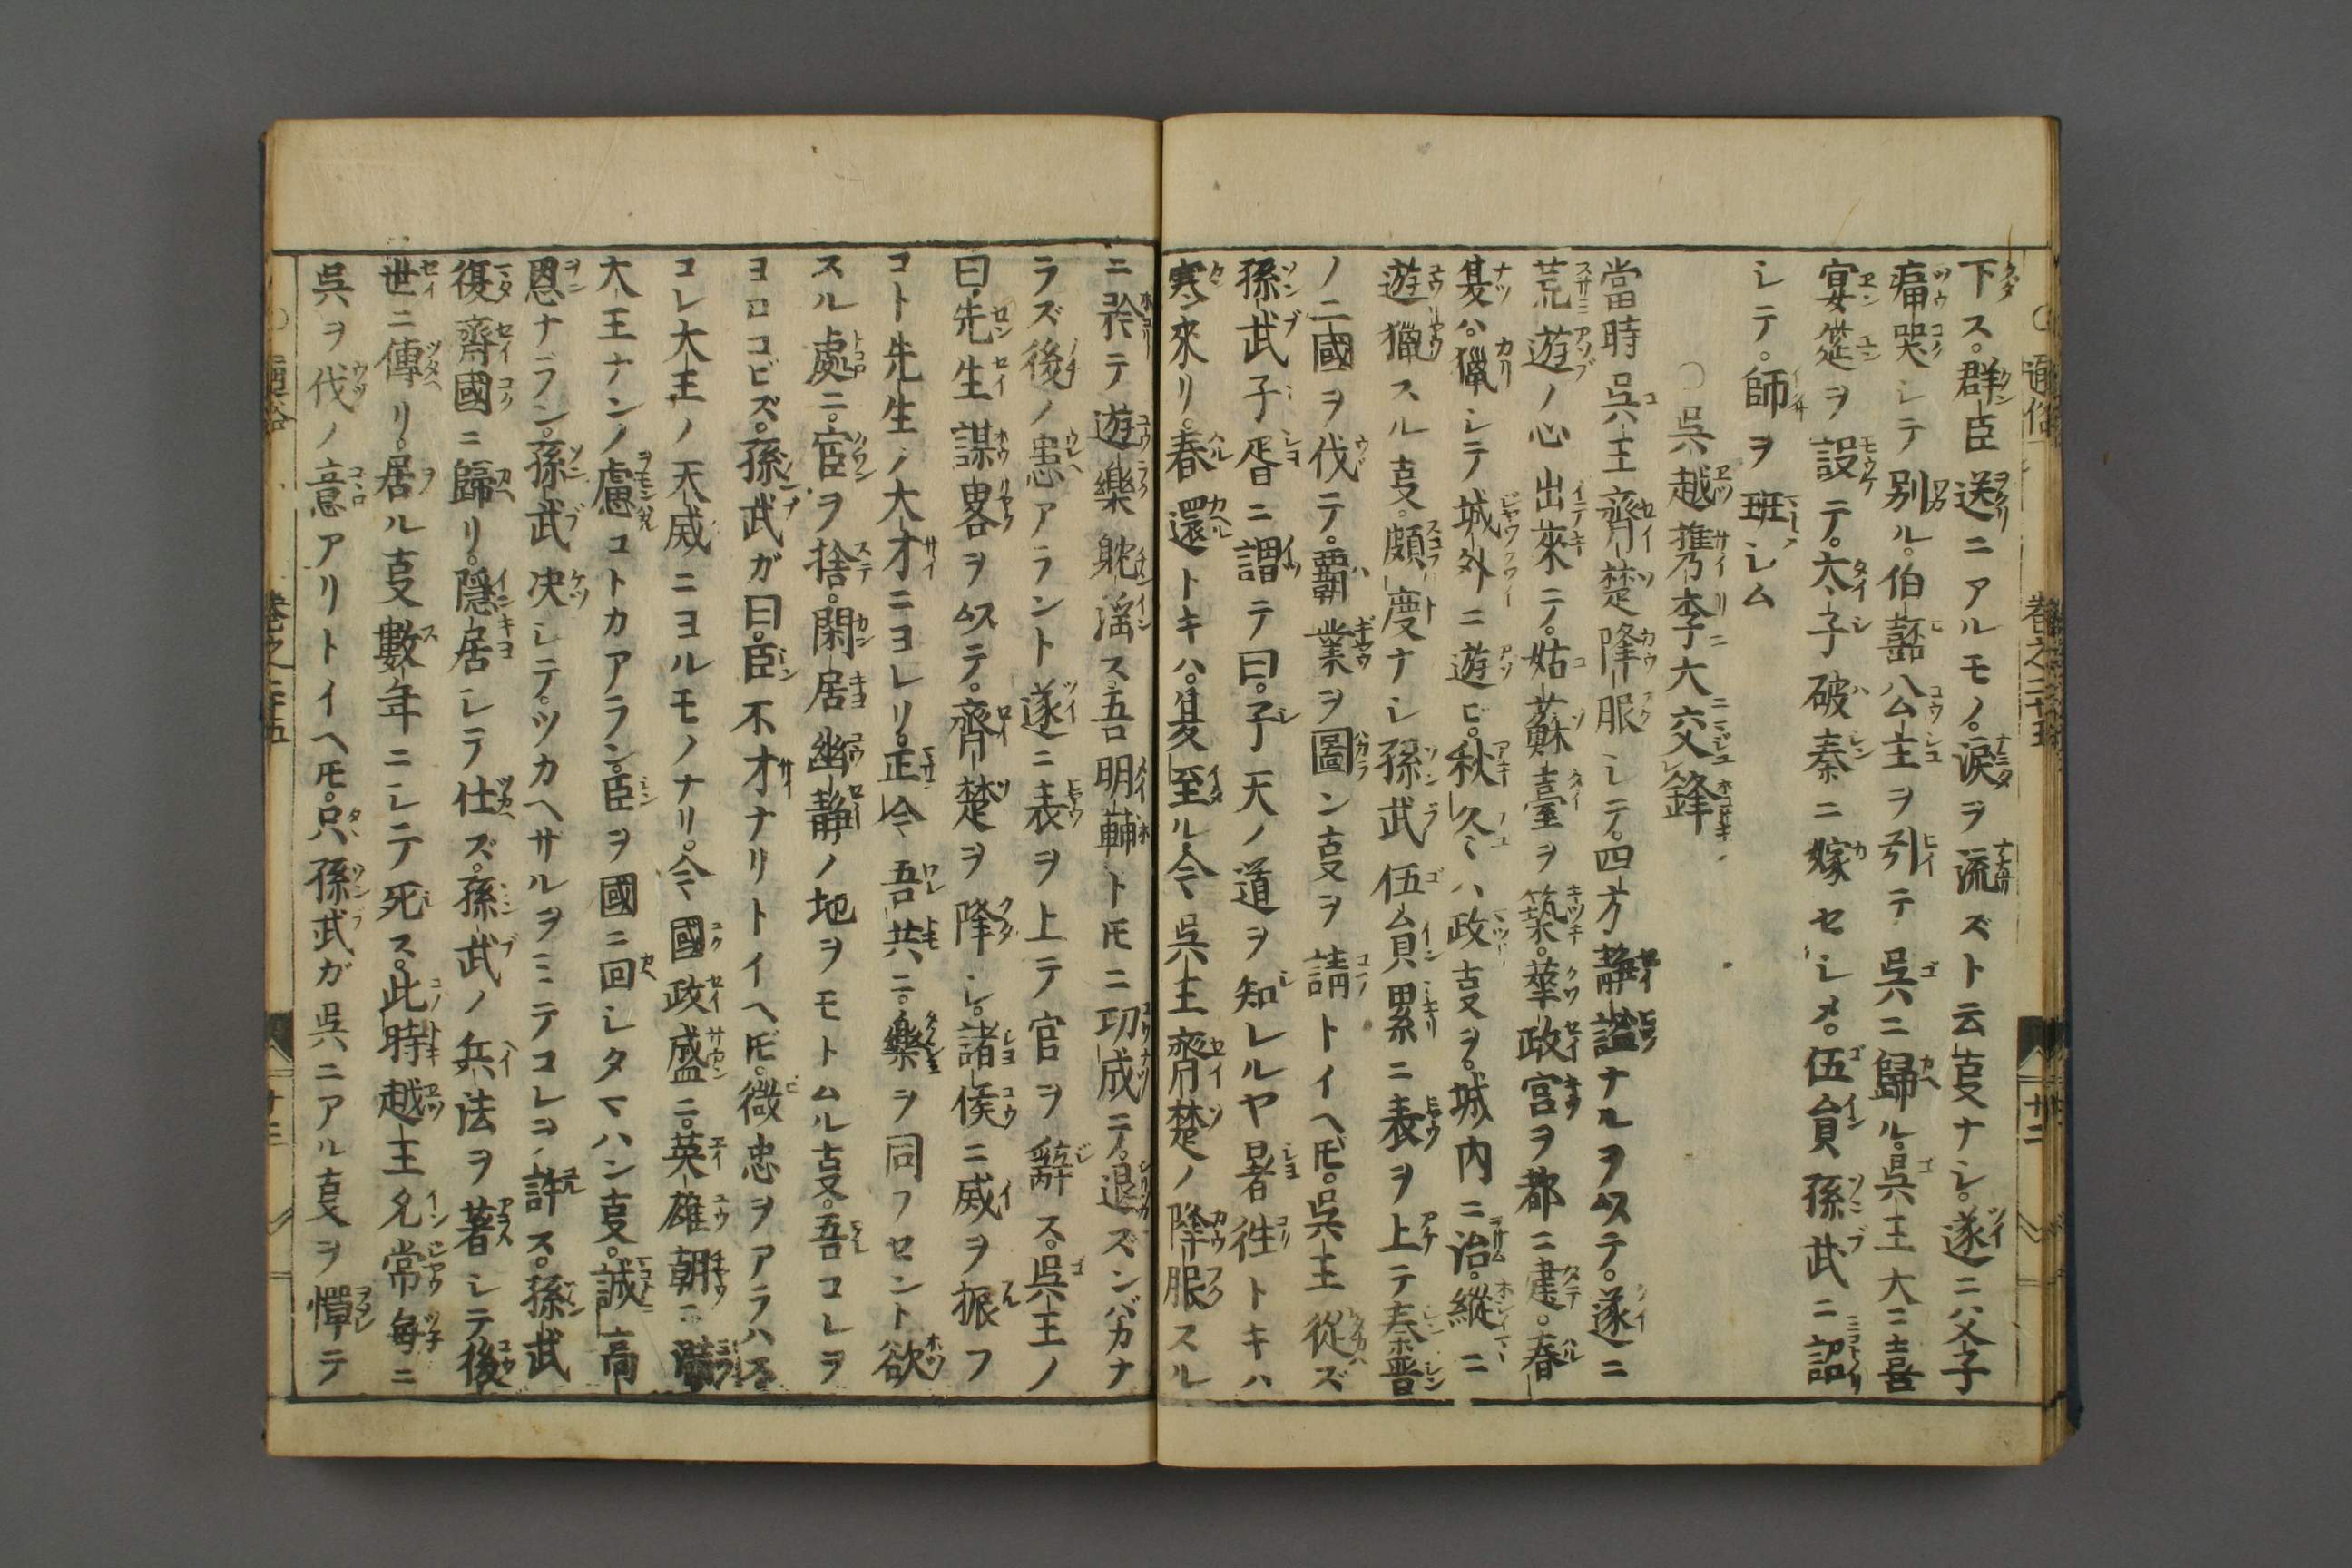 下ス。群臣送ニアルモノ。涙ヲ流ズト云𫝆ナシ。遂ニ父子
痛哭シテ別ル。伯嚭公主ヲ引テ呉ニ歸ル。呉王大ニ喜
宴筵ヲ設テ。太子破秦ニ嫁セシメ。伍員孫武ニ詔
シテ。師ヲ班シム
○呉越檇李ニ大交鋒
當時呉王齊楚降服シテ。四方靜謐ナルヲ以テ。遂ニ
荒遊ノ心出來ニテ。姑蘇臺ヲ築。華政宮ヲ都ニ建。春
夏ハ。獵シテ城外ニ遊ビ。秋冬ハ政事ヲ。城内ニ治。縱ニ
遊獵スル事。頗度ナシ孫武伍員累ニ表ヲ上テ秦晋
ノ二國ヲ伐テ。覇業ヲ圖ン事ヲ請トイヘ𪜈。呉王從ズ
孫武子胥ニ謂テ曰。子天ノ道ヲ知レルヤ暑徃トキハ
寒來リ。春還トキハ。夏至ル今呉王齊楚ノ降服スル
ニ矜テ遊樂躭滛ス。吾明輔ト𪜈ニ功成テ。退ズンバカナ
ラズ後ノ患アラント遂ニ表ヲ上テ官ヲ辭ス。呉王ノ
曰。先生謀畧ヲ以テ。齊楚ヲ降シ。諸侯ニ威ヲ振フ
コト先生ノ大才ニヨレリ。正今吾共ニ。樂ヲ同フセント欲
スル處ニ。官ヲ捨。閑居幽靜ノ地ヲモトムル事。吾コレヲ
ヨロコビズ。孫武ガ曰。臣不才ナリトイヘ𪜈。微忠ヲアラハス
コレ大王ノ天威ニヨルモノナリ。今國政盛ニ。英雄朝ニ滿
大王ナンノ慮コトカアラン。臣ヲ國ニ回シタマハン事。誠高
恩ナラン。孫武决シテ。ツカヘザルヲミテコレヲ許ス。孫武
復齊國ニ歸リ。隱居シテ仕ズ。孫武ノ兵法ヲ著シテ後
世ニ傳リ。居ル事數年ニシテ死ス。此時越王允常毎ニ
呉ヲ伐ノ意アリトイヘ𪜈。只孫武ガ呉ニアル事ヲ憚テ